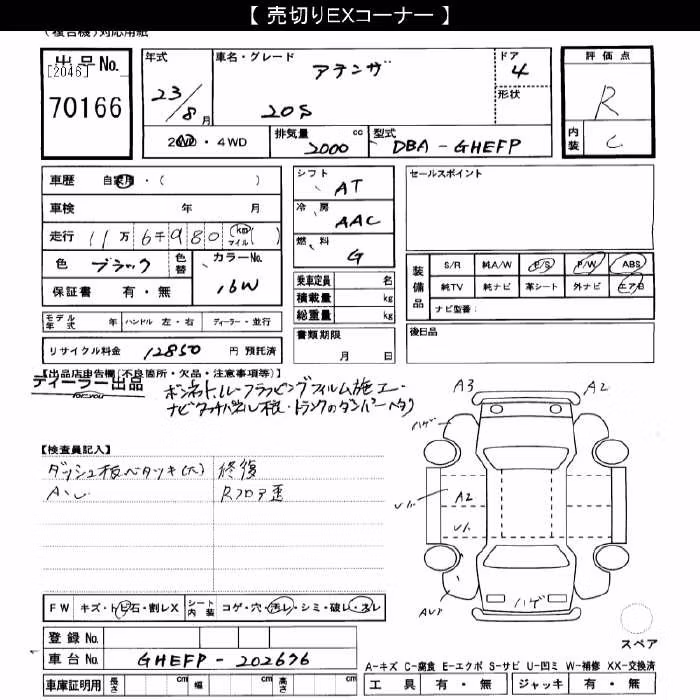 【 売切りEXコーナー 】
(複合機)対応用紙
出品No. [2046] 70166
年式 23/8月
車名・グレード アテンザ 20S
ドア 4
形状
評価点 R
内装 C
2WD・4WD
排気量 2000 cc
型式 DBA-GHEFP
車歴 自家用・( )
車検 年 月
走行 11万6千980 (km マイル)( )
色 ブラック 色替
カラーNo. 16W
保証書 有・無
モデル年式 年 ハンドル 左・右 ディーラー・並行
リサイクル料金 12850 円 預託済
シフト AT
冷房 AAC
燃料 G
乗車定員 名
積載量 kg
総重量 kg
書類期限 月 日
セールスポイント
装備品 S/R 純A/W P/S P/W ABS
純TV 純ナビ 革シート 外ナビ エアB
ナビ型番:
後日品
【出品店申告欄(不良箇所・欠品・注意事項等)】
ディーラー出品
FOR YOU
ボンネットルーフラッピングフィルム施工
ナビタッチパネル板・トランクのダンパーヘタリ
【検査員記入】
ダッシュ板ベタツキ(大) 修復
Rフロア歪
A3 A2
ハゲ
A2
ハゲ
スペア
FW キズ・トビ石・割レX シート内装 コゲ・穴・汚レ・シミ・破レ・スレ
登録No.
車台No. GHEFP-202676
車庫証明用 長さ cm 幅 cm 高さ cm
A-キズ C-腐食 E-エクボ S-サビ U-凹ミ W-補修 XX-交換済
工具 有・無 ジャッキ 有・無